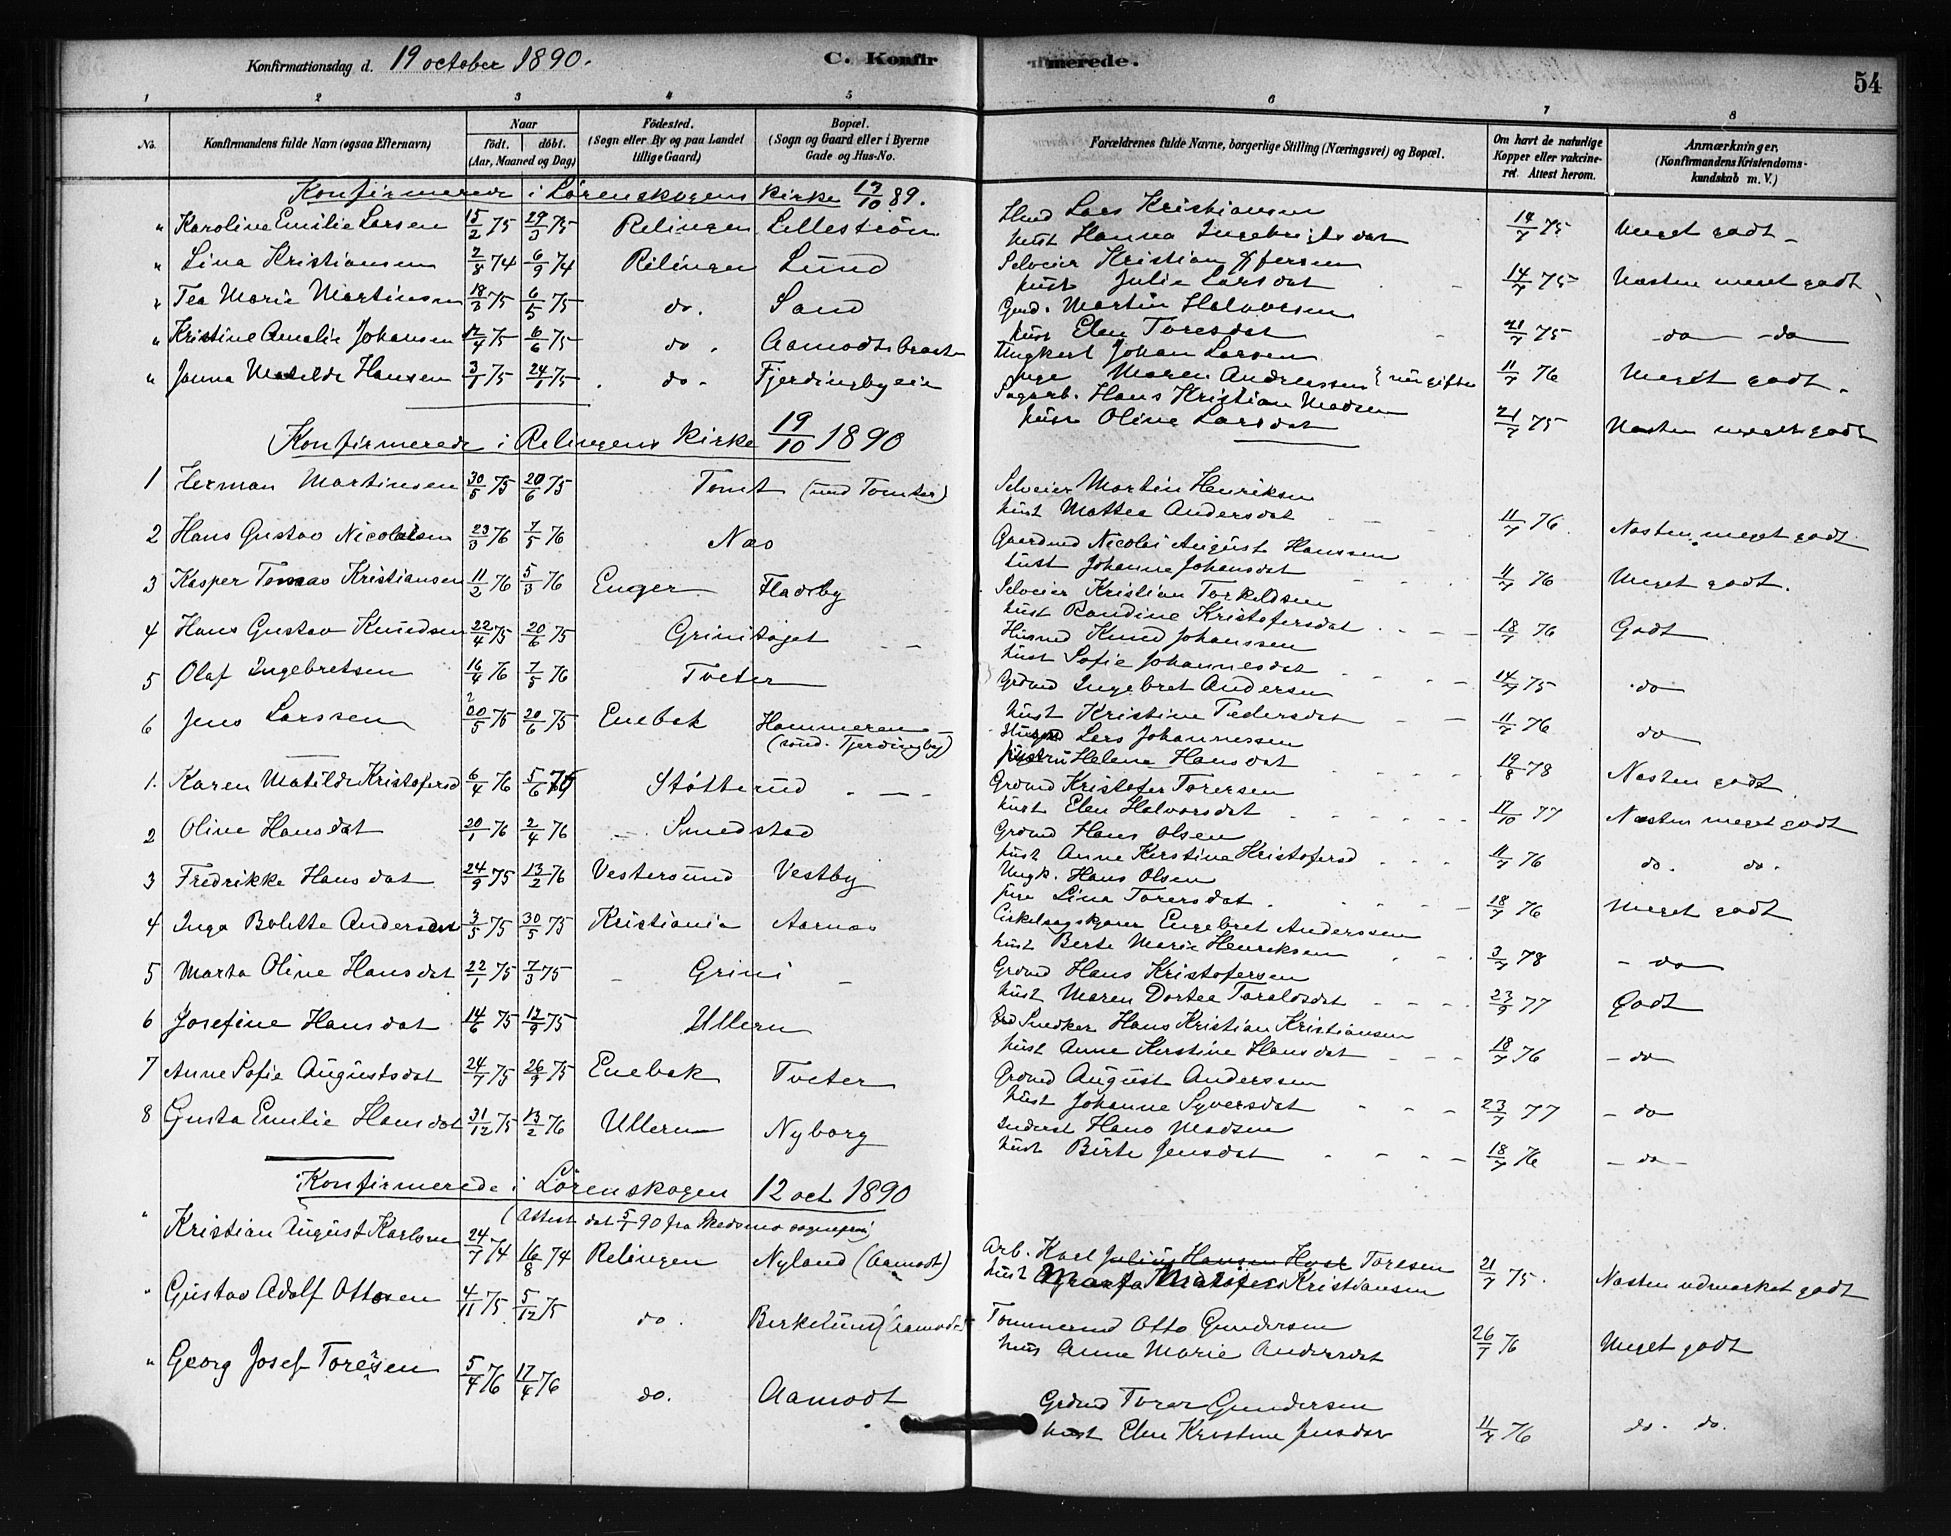 Konfirmationsdag d. 19 october 1890.
C. Konfirmerede.
54
1 2 3 4 5 6 7 8
No.
Konfirmandens fulde Navn (ogsaa Efternavn)
Naar
födt. döbt.
(Aar, Maaned og Dag)
Födested.
(Sogn eller By og paa Landet
tillige Gaard)
Bopæl.
(Sogn og Gaard eller i Byerne
Gade og Hus-No.
Forældrenes fulde Navne, borgerlige Stilling (Næringsvei) og Bopæl.
Om havt de naturlige
Kopper eller vakcine-
ret. Attest herom.
Anmærkninger.
(Konfirmandens Kristendoms-
kundskab m. V.)
Konfirmerede i Lörenskogens Kirke 89.
" Karoline Emilie Larsen 15/2 75 29/3 75 Relingen Lilleströn
Lars Kristiansen
hust Hanna Ingebrigtsdat 14/7 75 Meget godt
" Lina Kristiansen 2/8 74 6/9 74 Relingen Lund
Selveier Kristian
hust Julie Larsdat 14/7 75 Næsten meget godt
" Tea Marie Martinsen 18/3 75 6/5 75 do. Sand
Gmd. Martin Halvorsen
hust Elen Toresdat 21/7 75 do do
" Kristine Amalie Johansen 6/6 75 do. Aamodt
Ungkarl Johan Larsen
Pige Maren Andreassen 11/7 76 Meget godt.
" Matilde Hansen 75 24 75 do. Fjerdingbyeie
Sagarb. Hans Kristian Madsen
hust Oline Larsdat 21/7 75 Næsten meget godt
Konfirmerede i Relingens Kirke 19/10 1890
1 Herman Martinsen 30/5 75 20/6 75 Tomt
Selveier Martin Henriksen
hust Mattea Andersdat 11/7 76. Næsten meget godt
2 Hans Gustav Nicolaisen 23/3 76 7/5 76 Næs
Gaardmd Nicolai August Hanssen
hust Johanne Johansdat 11/7 76 Meget godt.
3 Kasper Tomas Kristiansen 11/2 76 5/3 76 Enger Fladeby
Selveier Kristian Torkildsen
hust Randine Kristofersdat 18/7 76 Godt
4 Hans Gustav Knudsen 22/4 75 20/6 75 Grini
Husmd Knud Johanssen
hust Sofie Johannesdat 14/7 75 do
5 Olaf Ingebretsen 16/4 76 7/5 76 Tveter
Grdmd Ingebret Andersen
hust Kristine Pedersdat 11/7 76 do
6 Jens Larssen 20/5 75 20/6 75 Enebak Hammeren
(und. Fjerdingby)
Lars Johannessen
Helene Hansdat 19/8 78 Næsten godt
1. Karen Matilde Kristofersd 6/4 76 5/6 76 Støtterud
Grdmd Kristofer Torersen
hust Elen Halvorsdat 17/10 77 Næsten meget godt
2 Oline Hansdat 20/1 76 2/4 76 Smedstad
Grdmd Hans Olsen
hust Anne Kerstine Kristofersd 11/7 76 do. do.
3 Fredrikke Hansdat 24/9 75 13/2 76 Vestersund Vestby
Ungk. Hans Olsen
Pige Lina Torersdat 18/7 76 Meget godt
4 Inga Bolette Andersen 3/5 75 30/5 75 Kristiania Aarnæs
Cirkelsagskjører Engebret Anderssen
hust Berte Marie Henriksen 3/7 78 do
5 Marta Oline Hansdat 22/1 75 7/3 75 Grini
Grdmd Hans Kristofersen
hust Maren Dortea Toraldsdat 23/9 77 Godt
6 Josefine Hansdat 14/6 75 12/9 75 Ullern
Snedker Hans Kristian Kristiansen
hust Anne Kerstine Hansdat 18/7 76 do
7 Anne Sofie Augustsdat 24/7 75 26/9 75 Enebak Tveter
Grdmd August Anderssen
hust Johanne Syversdat 23/7 77 do
8 Gusta Emilie Hansdat 31/12 75 13/2 76 Ullern Nyborg
Inderst Hans Madsen
hust Birte Jensdat 18/7 76 do
Konfirmerede i Lörenskogen 12 oct 1890
(Attest dat 5/1 90 fra Skedsmo
" Kristian August Karlsen 24/7 74 16/8 74 Relingen Nyland (Aamodt)
Arb. Karl Julius Hansen Toresen
hust Kristiansen 21/7 75. Næsten udmærket godt
" Gustav Adolf Ottosen 4/11 75 5/12 75 do. Birkelund (Aamodt)
Tømmermd Otto Gundersen
hus Anne Marie Andersdat 26/7 76 Meget godt
" Georg Josef Toresen 5/4 76 17/4 76 do. Aamodt
Grdmd Torer Gundersen
hust Elen Kristine Jensdat 11/7 76 do. do.